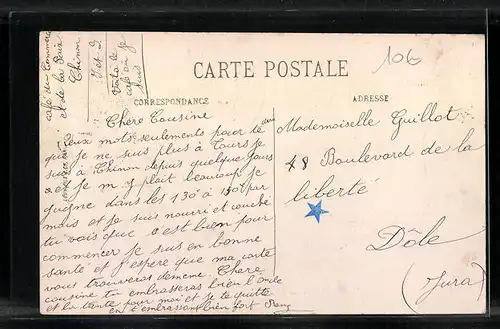 106
CARTE POSTALE
CORRESPONDANCE
ADRESSE
café du Commerce
et de la Paix
Chinon
I et L
Voila le
café où je
suis
Chère Cousine
Deux mots seulements pour te dire
que je ne suis plus à Tours je
suis à Chinon depuis quelque jours
et je m y plait beaucoup je
gagne dans les 130 à 150f par
mois et je suis nourri et couché
tu vois que c'est bien pour
commencer je suis en bonne
santé et j'espère que ma carte
vous trouveras de meme. Chere
cousine tu embrasseras bien l'oncle
et la tante pour moi et je te quitte
en t embrassan bien fort
Mademoiselle Guillot
48 Boulevard de la
liberté
Dôle
(Jura)